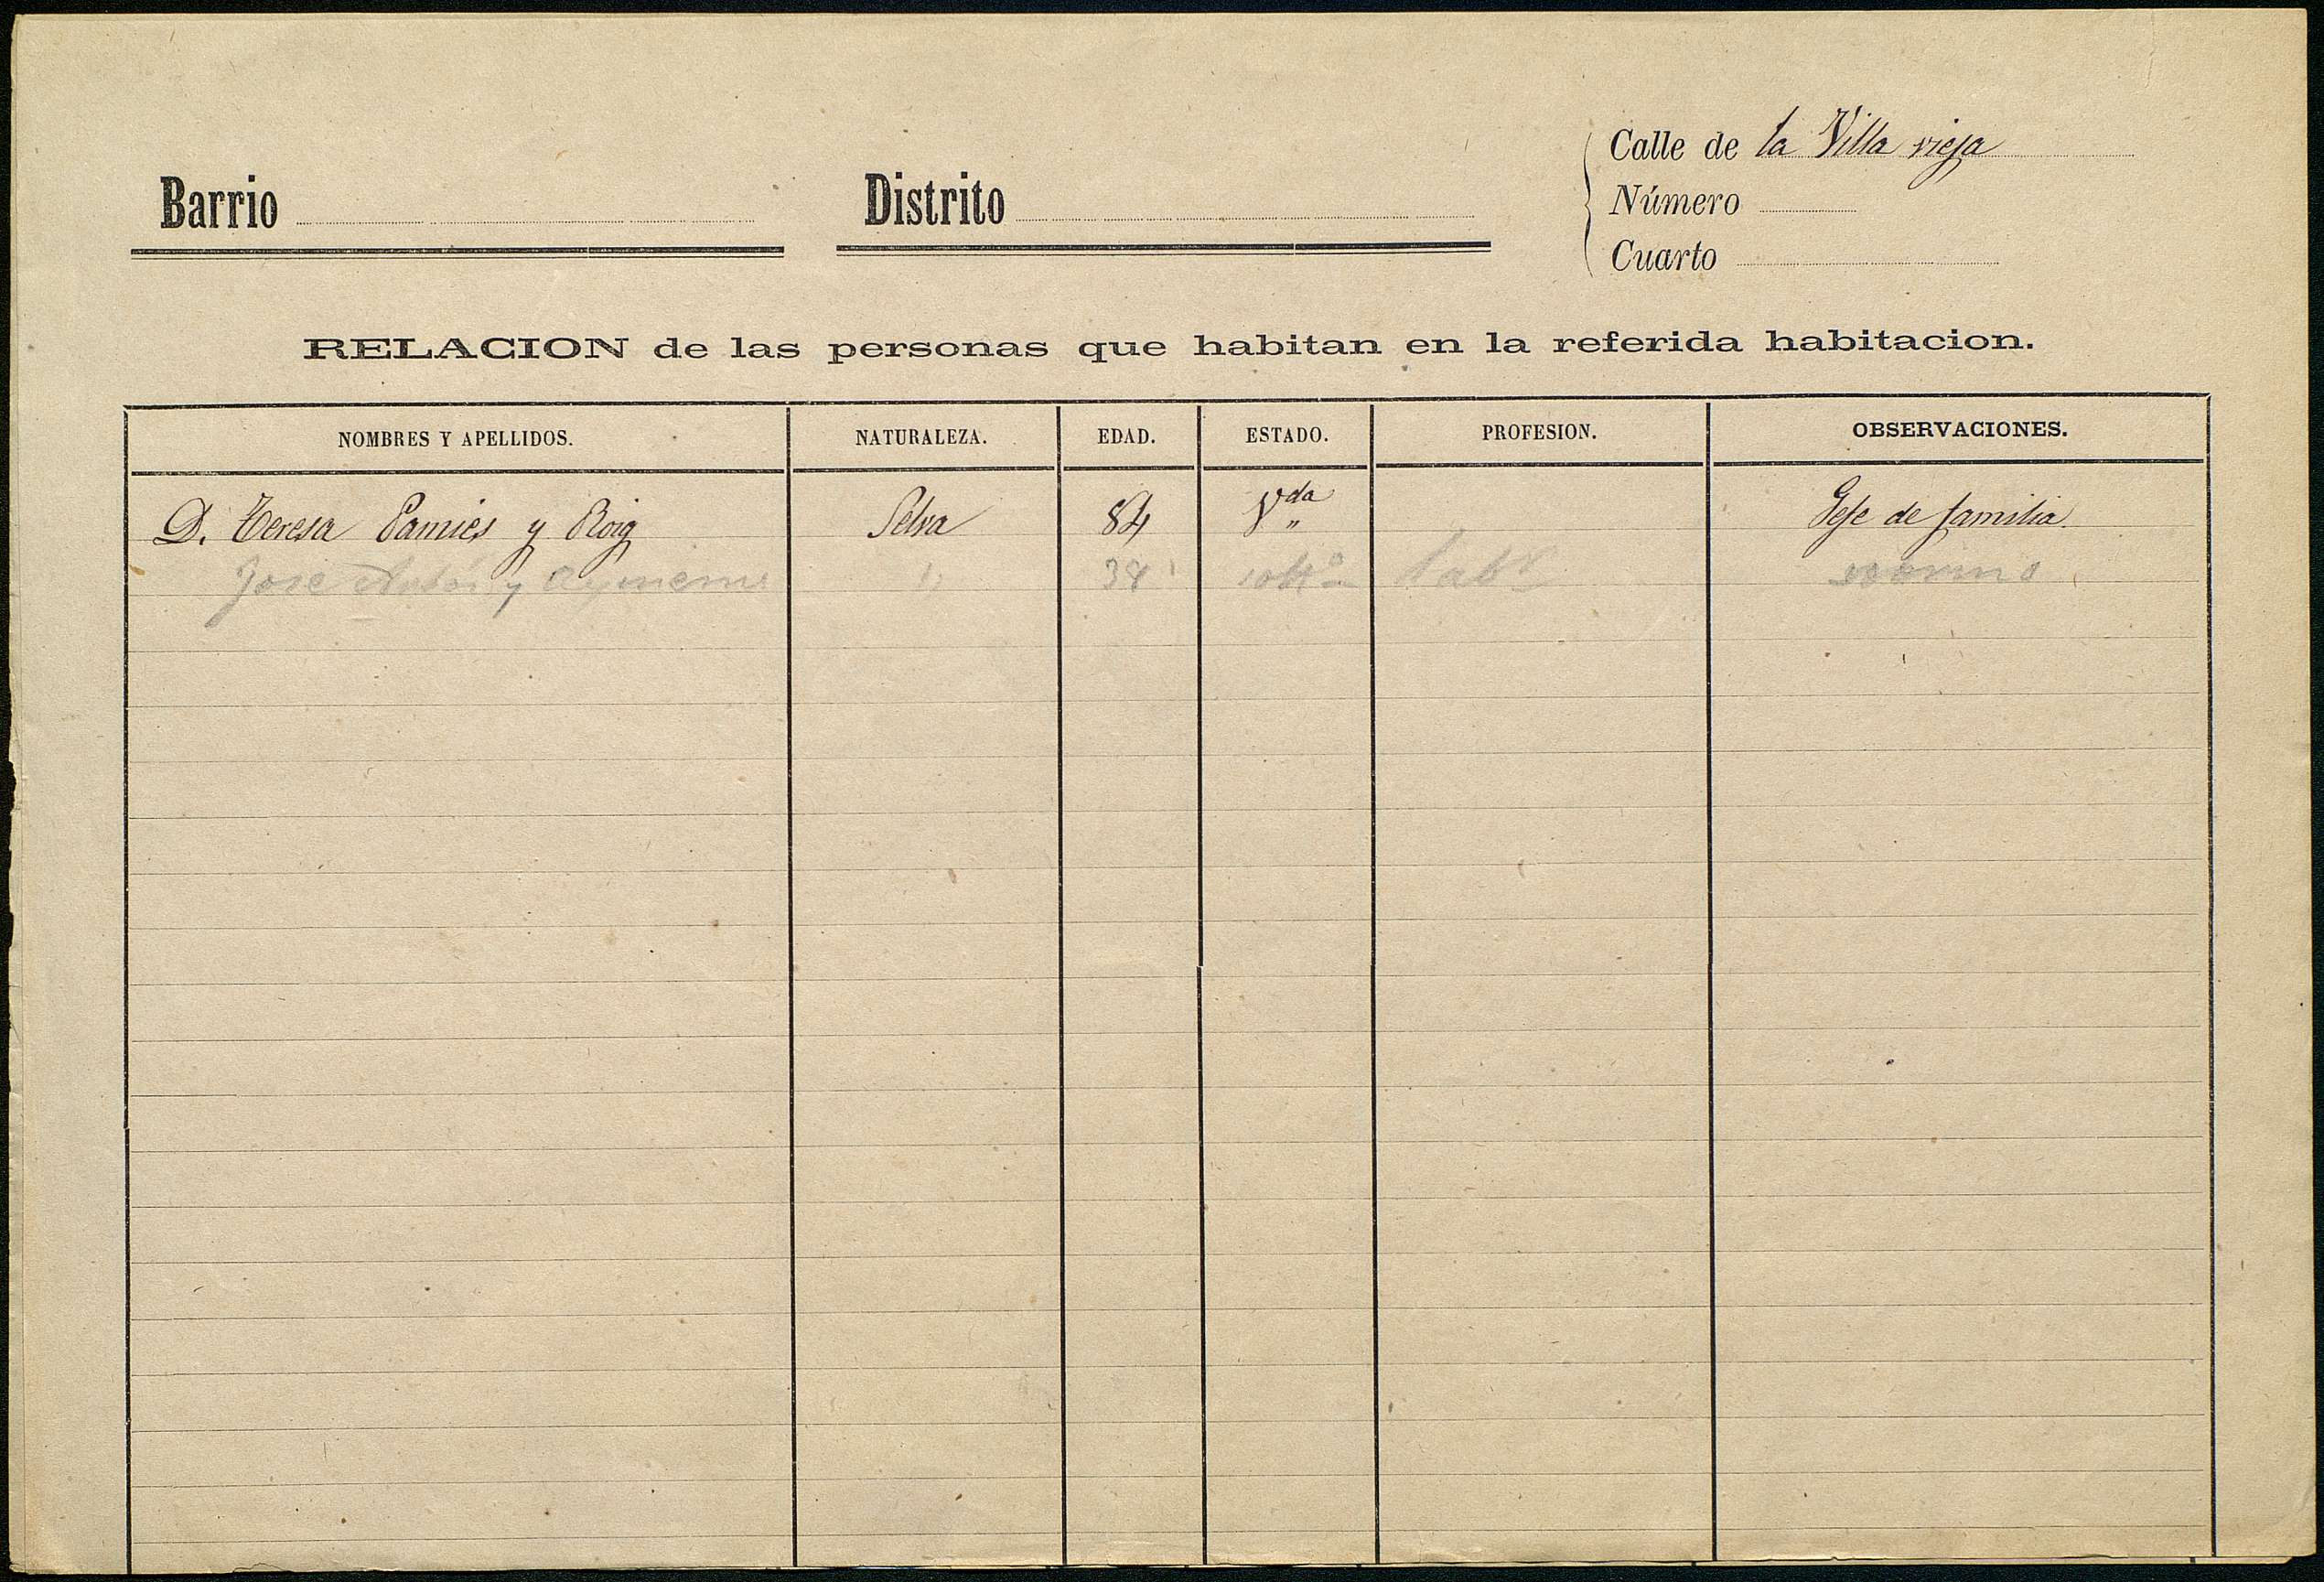 Barrio
Distrito
Calle de la Villa vieja
Número
Cuarto
RELACION de las personas que habitan en la referida habitacion.
NOMBRES Y APELLIDOS. NATURALEZA. EDAD. ESTADO. PROFESION. OBSERVACIONES.
D. Teresa Pamies y Roig Selva 84 Vda " Gefe de familia.
Jose Antón y Aymemi " 38 solto Labr sobrino